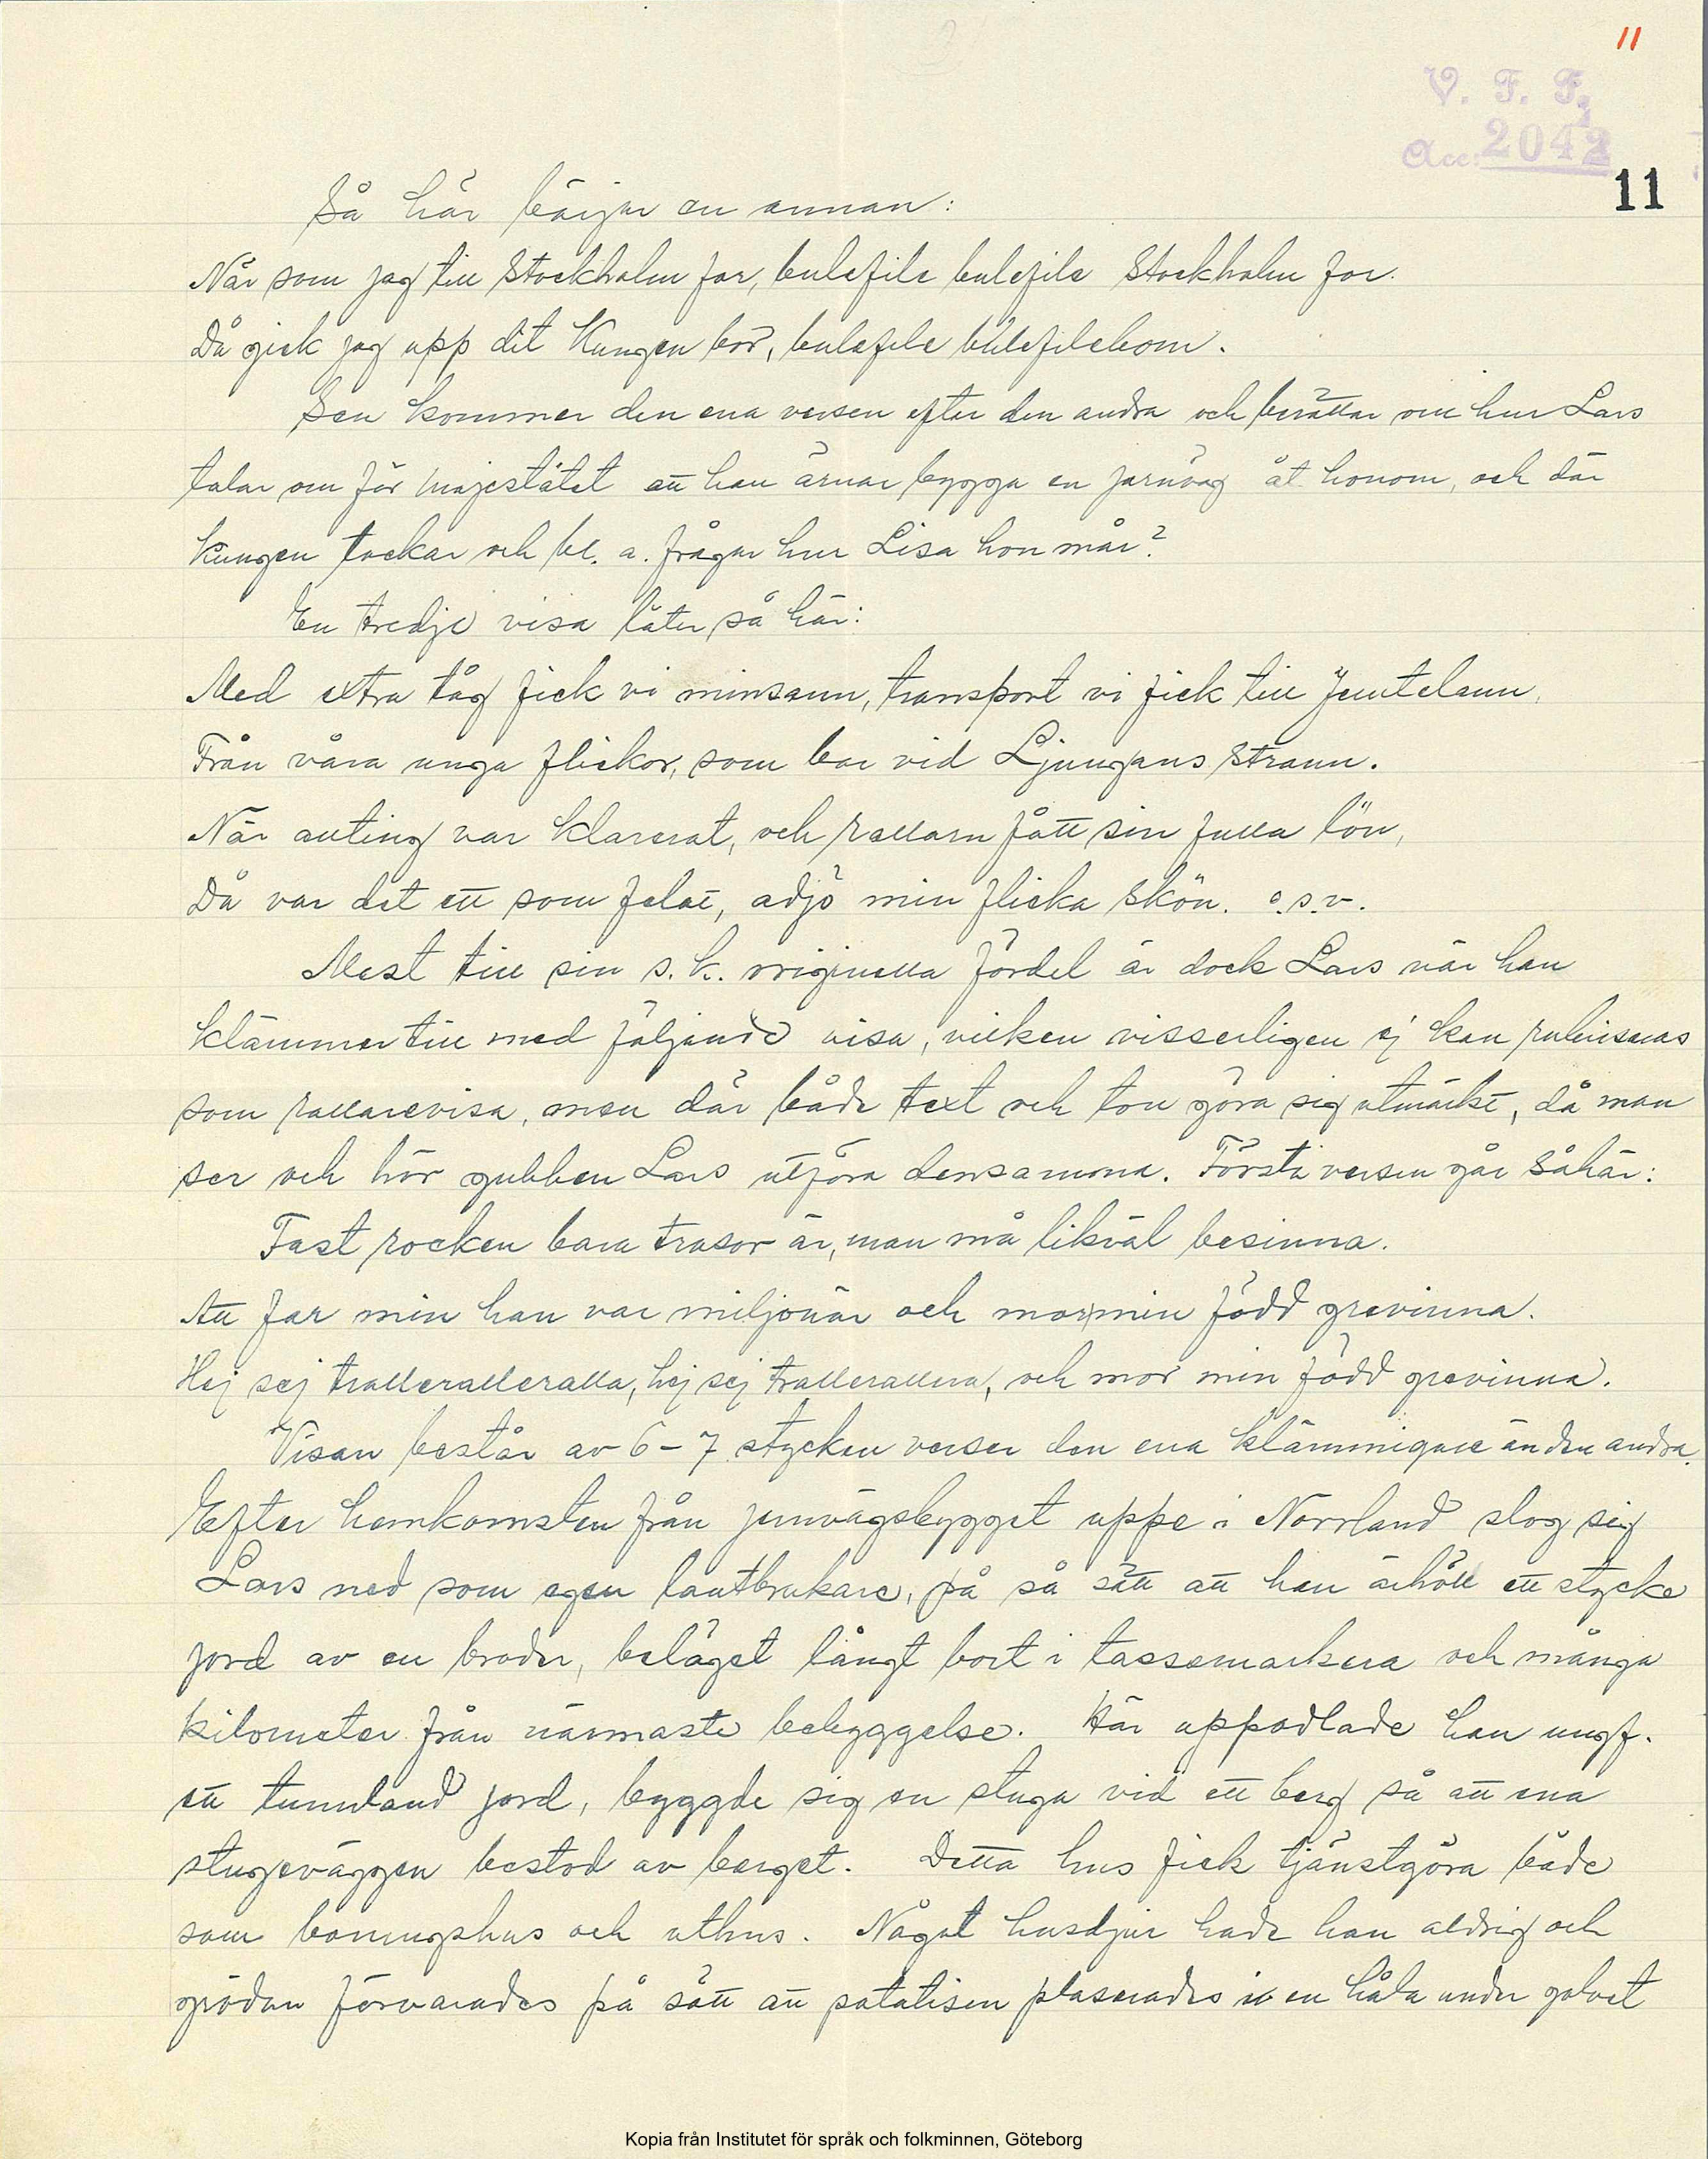 11
V. F. F.
Acc: 2042
11
Så här börjar en annan:
När som jag till Stockholm for, bulefile bulefile Stockholm for.
Då gick jag upp dit Kungen bor, bulefile bulefilebom.
Sen kommer den ena versen efter den andra och berättar om hur Lars
talar om för majestätet att han ärnar bygga en jarnväg åt honom, och där
kungen tackar och bl. a. frågar hur Lisa hon mår?
En tredje visa låter så här:
Med extra tåg fick vi minsann, transport vi fick till Jemtelann,
Från våra unga flickor, som bor vid Ljungans strann.
När anting var klarerat, och rallarn fått sin fulla lön,
Då var det ett som felat, adjö min flicka skön. o.s.v.
Mest till sin s.k. originella fördel är dock Lars när han
klämmer till med följande visa, vilken visserligen ej kan rubriseras
som rallarevisa, men där både text och ton göra sig utmärkt, då man
ser och hör gubben Lars utföra densamma. Första versen går såhär:
Fast rocken bara trasor är, man må likväl besinna.
Att far min han var miljonär och mor min född grevinna.
Hej sej tralleralleralla, hej sej trallerallera, och mor min född grevinna.
Visan består av 6-7 stycken verser den ena klämmigare än den andra.
Efter hemkomsten från jernvägsbygget uppe i Norrland slog sig
Lars ned som egen lantbrukare, på så sätt att han erhöll ett stycke
jord av en broder, beläget långt bort i tassemarkera och många
kilometer från närmaste bebyggelse. Här uppodlade han ungf.
ett tunnland jord, byggde sig en stuga vid ett berg så att ena
stugeväggen bestod av berget. Detta hus fick tjänstgöra både
som boningshus och uthus. Något husdjur hade han aldrig och
grödan förvarades på sätt att potatisen plaserades i en håla under golvet
Kopia från Institutet för språk och folkminnen, Göteborg